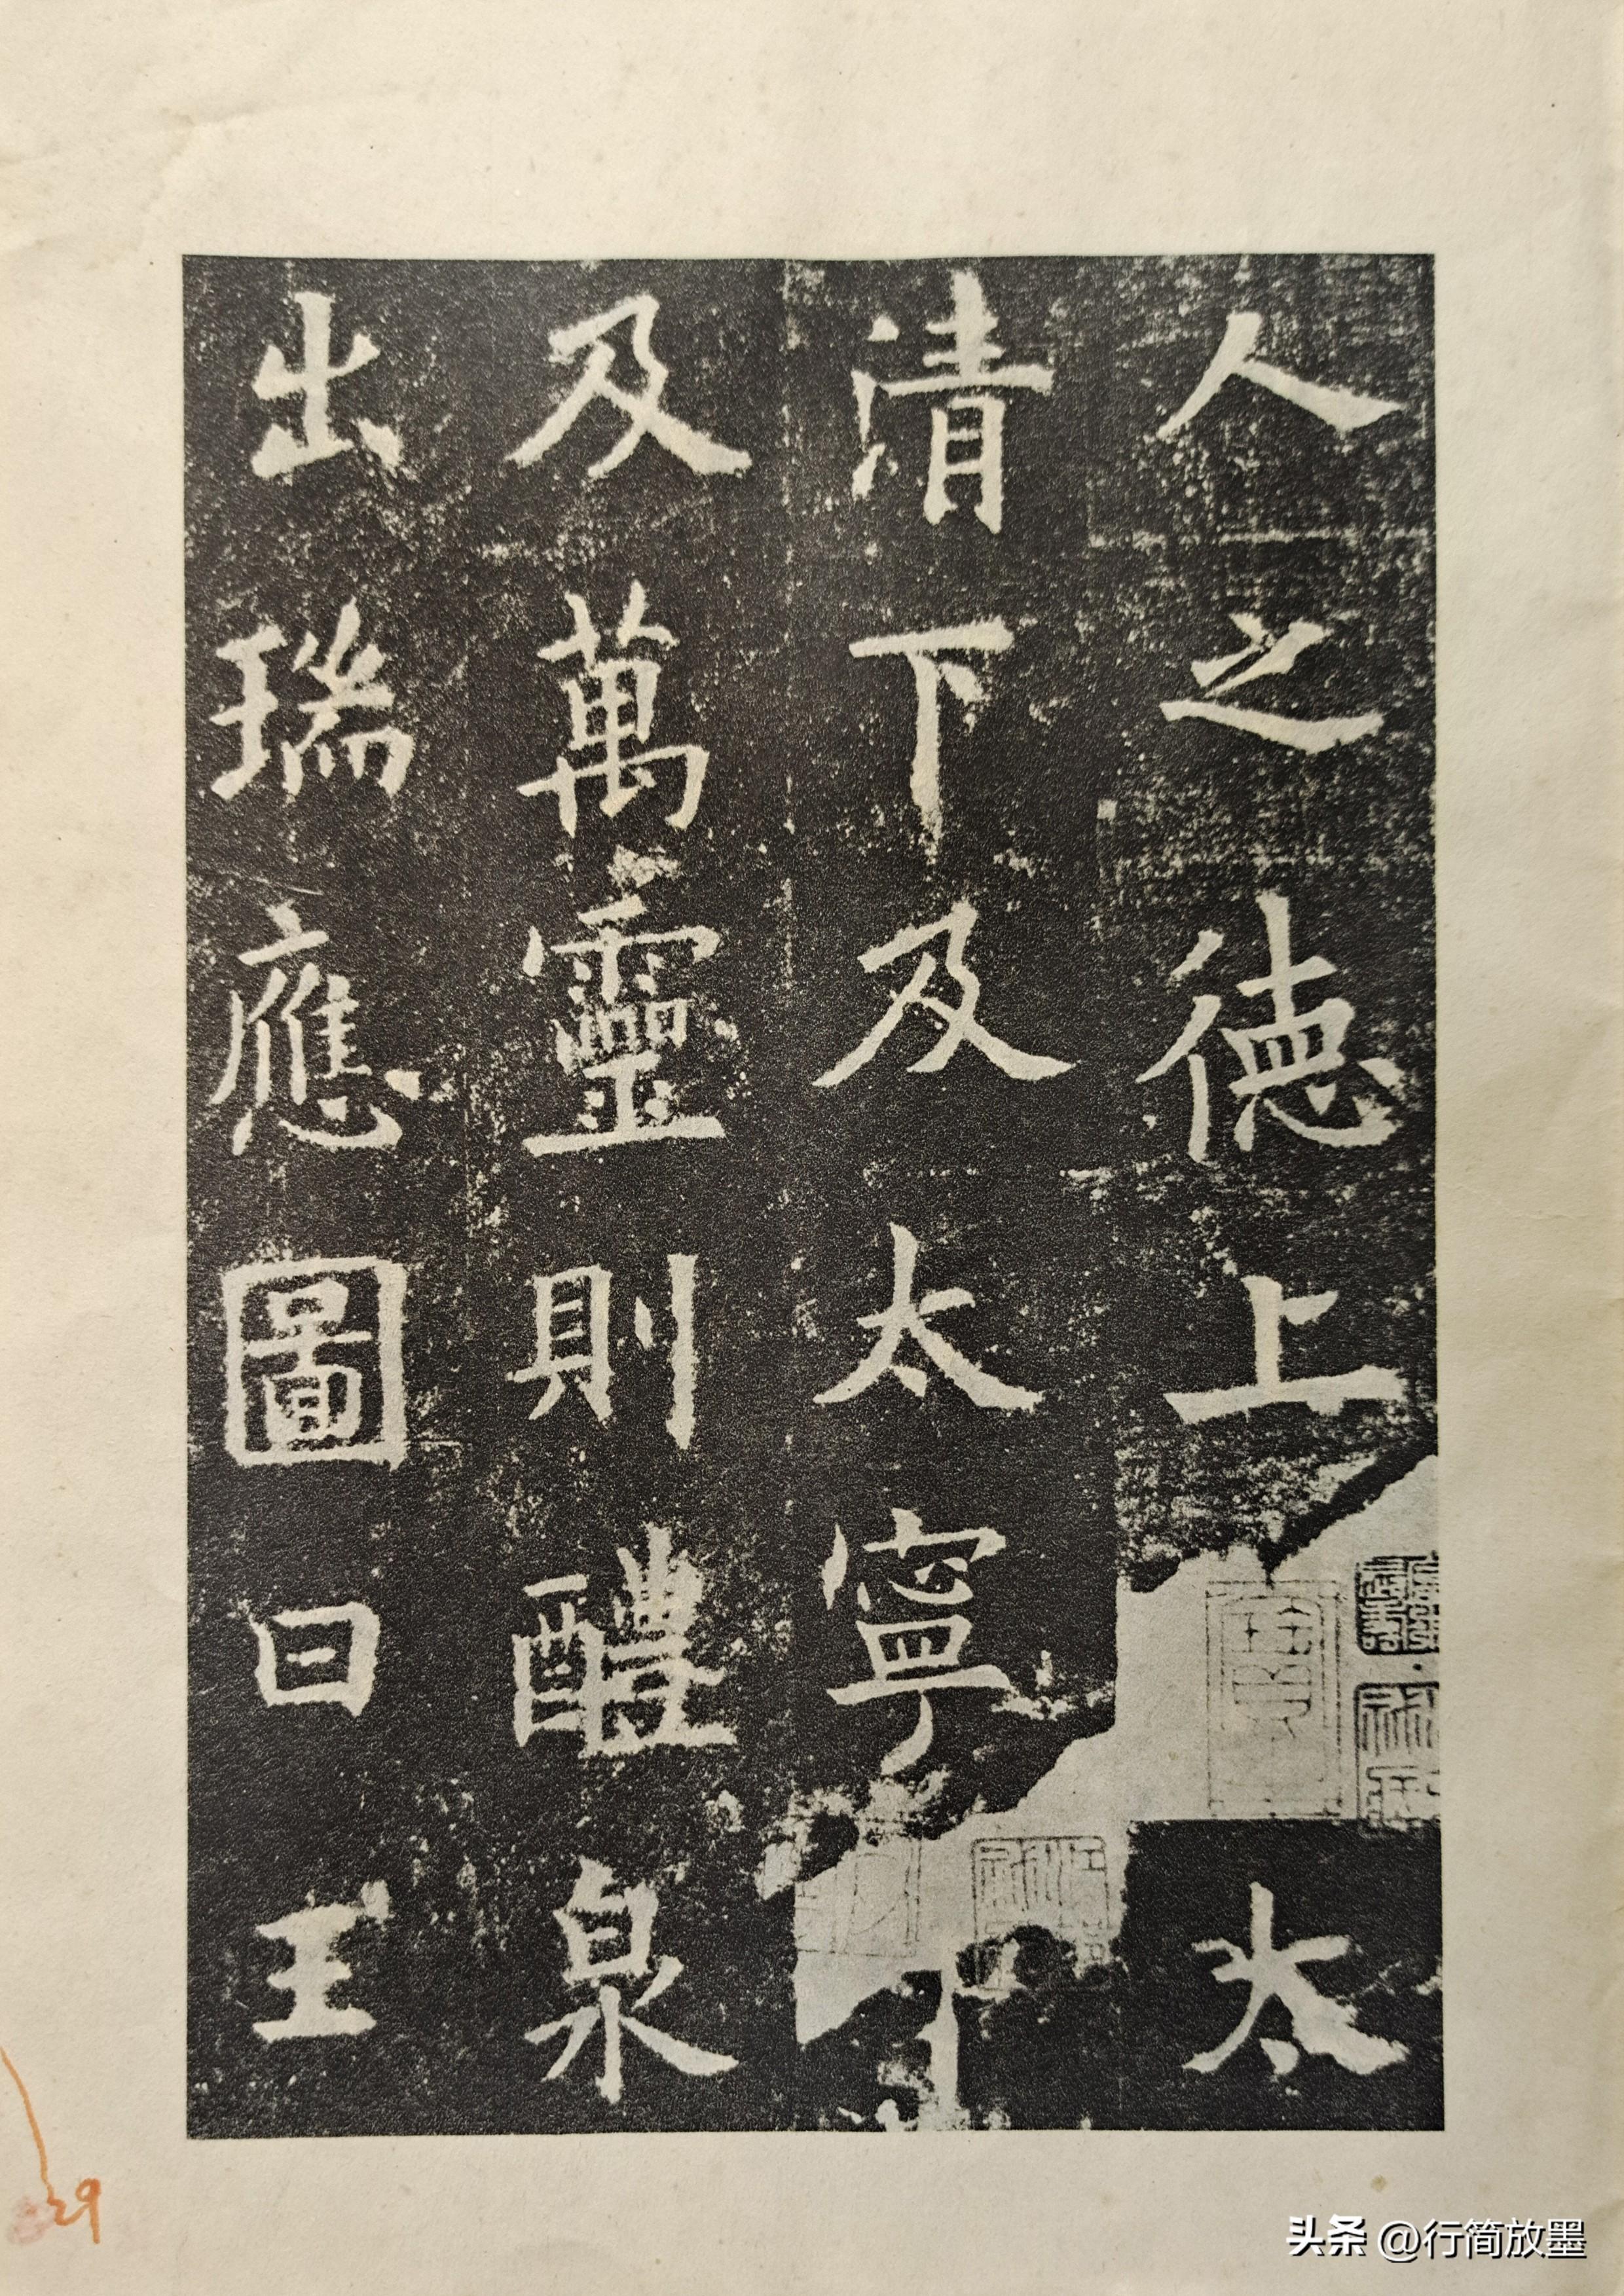 人之德上太
清下及太寧下
及萬靈則醴泉
出瑞應圖曰王
29
头条 @行简放墨